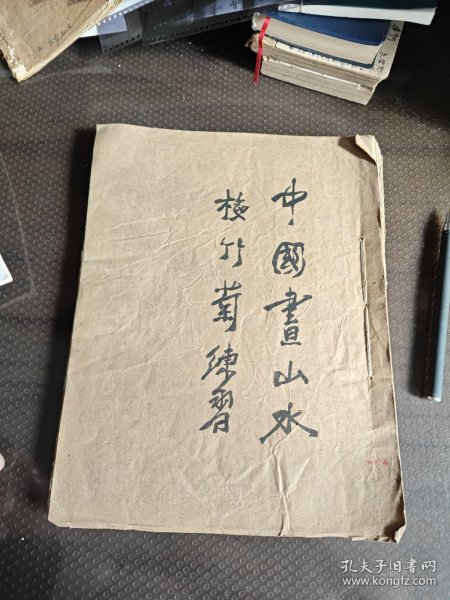 中國畫山水
梅竹菊練習
孔夫子旧书网
www.kongfz.com